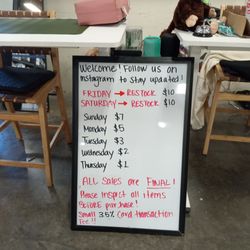 Welcome! Follow us on
Instagram to stay updated!
FRIDAY → RESTOCK $10
SATURDAY → RESTOCK $10
Sunday $7
Monday $5
Tuesday $3
Wednesday $2
Thursday $1
ALL Sales are FINAL!
Please inspect all items
BEFORE purchase!
Small 3.5% Card transaction
Fee!!